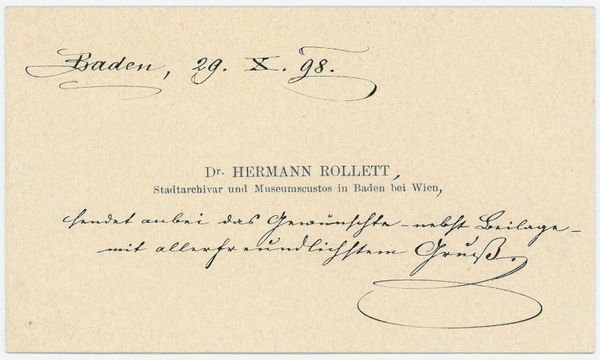 Baden, 29. X. 98.
Dr. HERMANN ROLLETT,
Stadtarchivar und Museumscustos in Baden bei Wien,
sendet anbei das Gewünschte – nebst Beilage –
mit allerfreundlichstem Gruß.